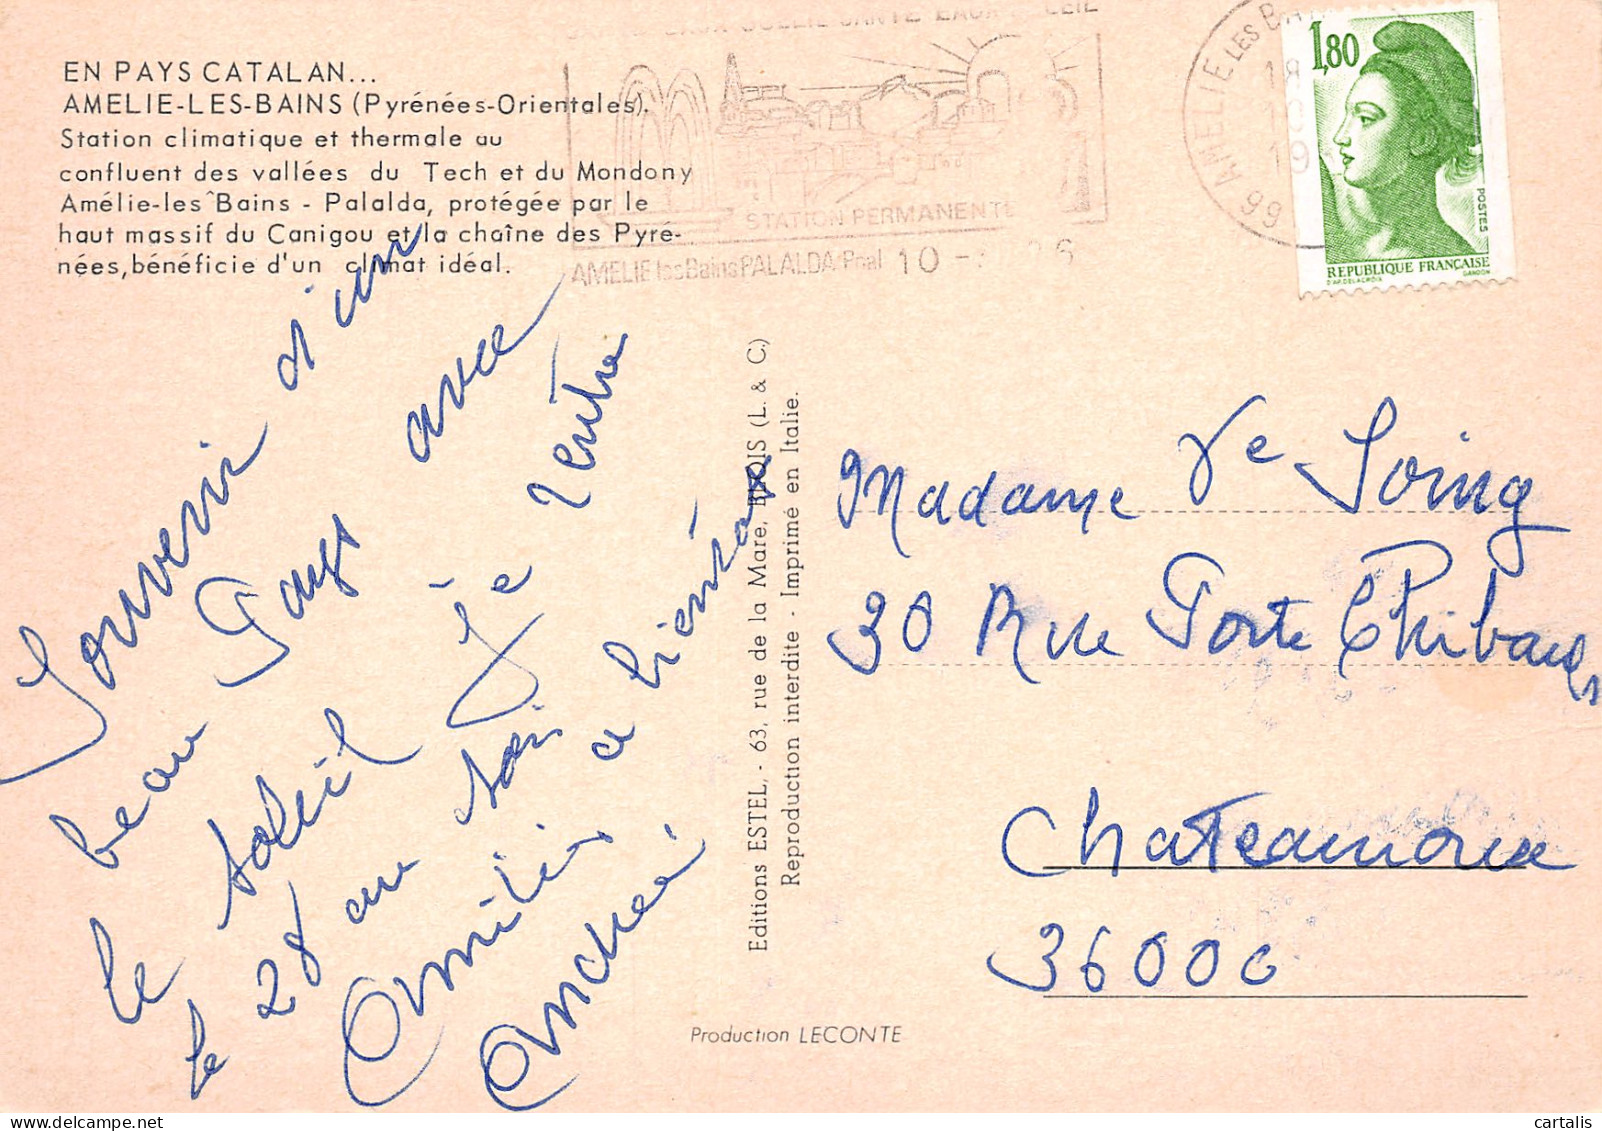 EN PAYS CATALAN...
AMELIE-LES-BAINS (Pyrénées-Orientales).
Station climatique et thermale au
confluent des vallées du Tech et du Mondony
Amélie-les-Bains - Palalda, protégée par le
haut massif du Canigou et la chaîne des Pyré-
nées, bénéficie d'un climat idéal.
STATION PERMANENTE
AMELIE les Bains PALALDA P.rial 10
AMELIE LES BAINS
66
18
10
19
1,80
POSTES
REPUBLIQUE FRANÇAISE
D'AP. DELACROIX GANDON
Souvenir d'un
beau Pays avec
le soleil Je rentre
le 28 au soir
a bientôt
Amitiés
Andrée
Editions ESTEL, - 63, rue de la Mare, BLOIS (L. & C.)
Reproduction interdite - Imprimé en Italie.
Production LECONTE
Madame Ve Loing
30 Rue Porte Thibault
Chateauroux
36000
cartalis
www.delcampe.net